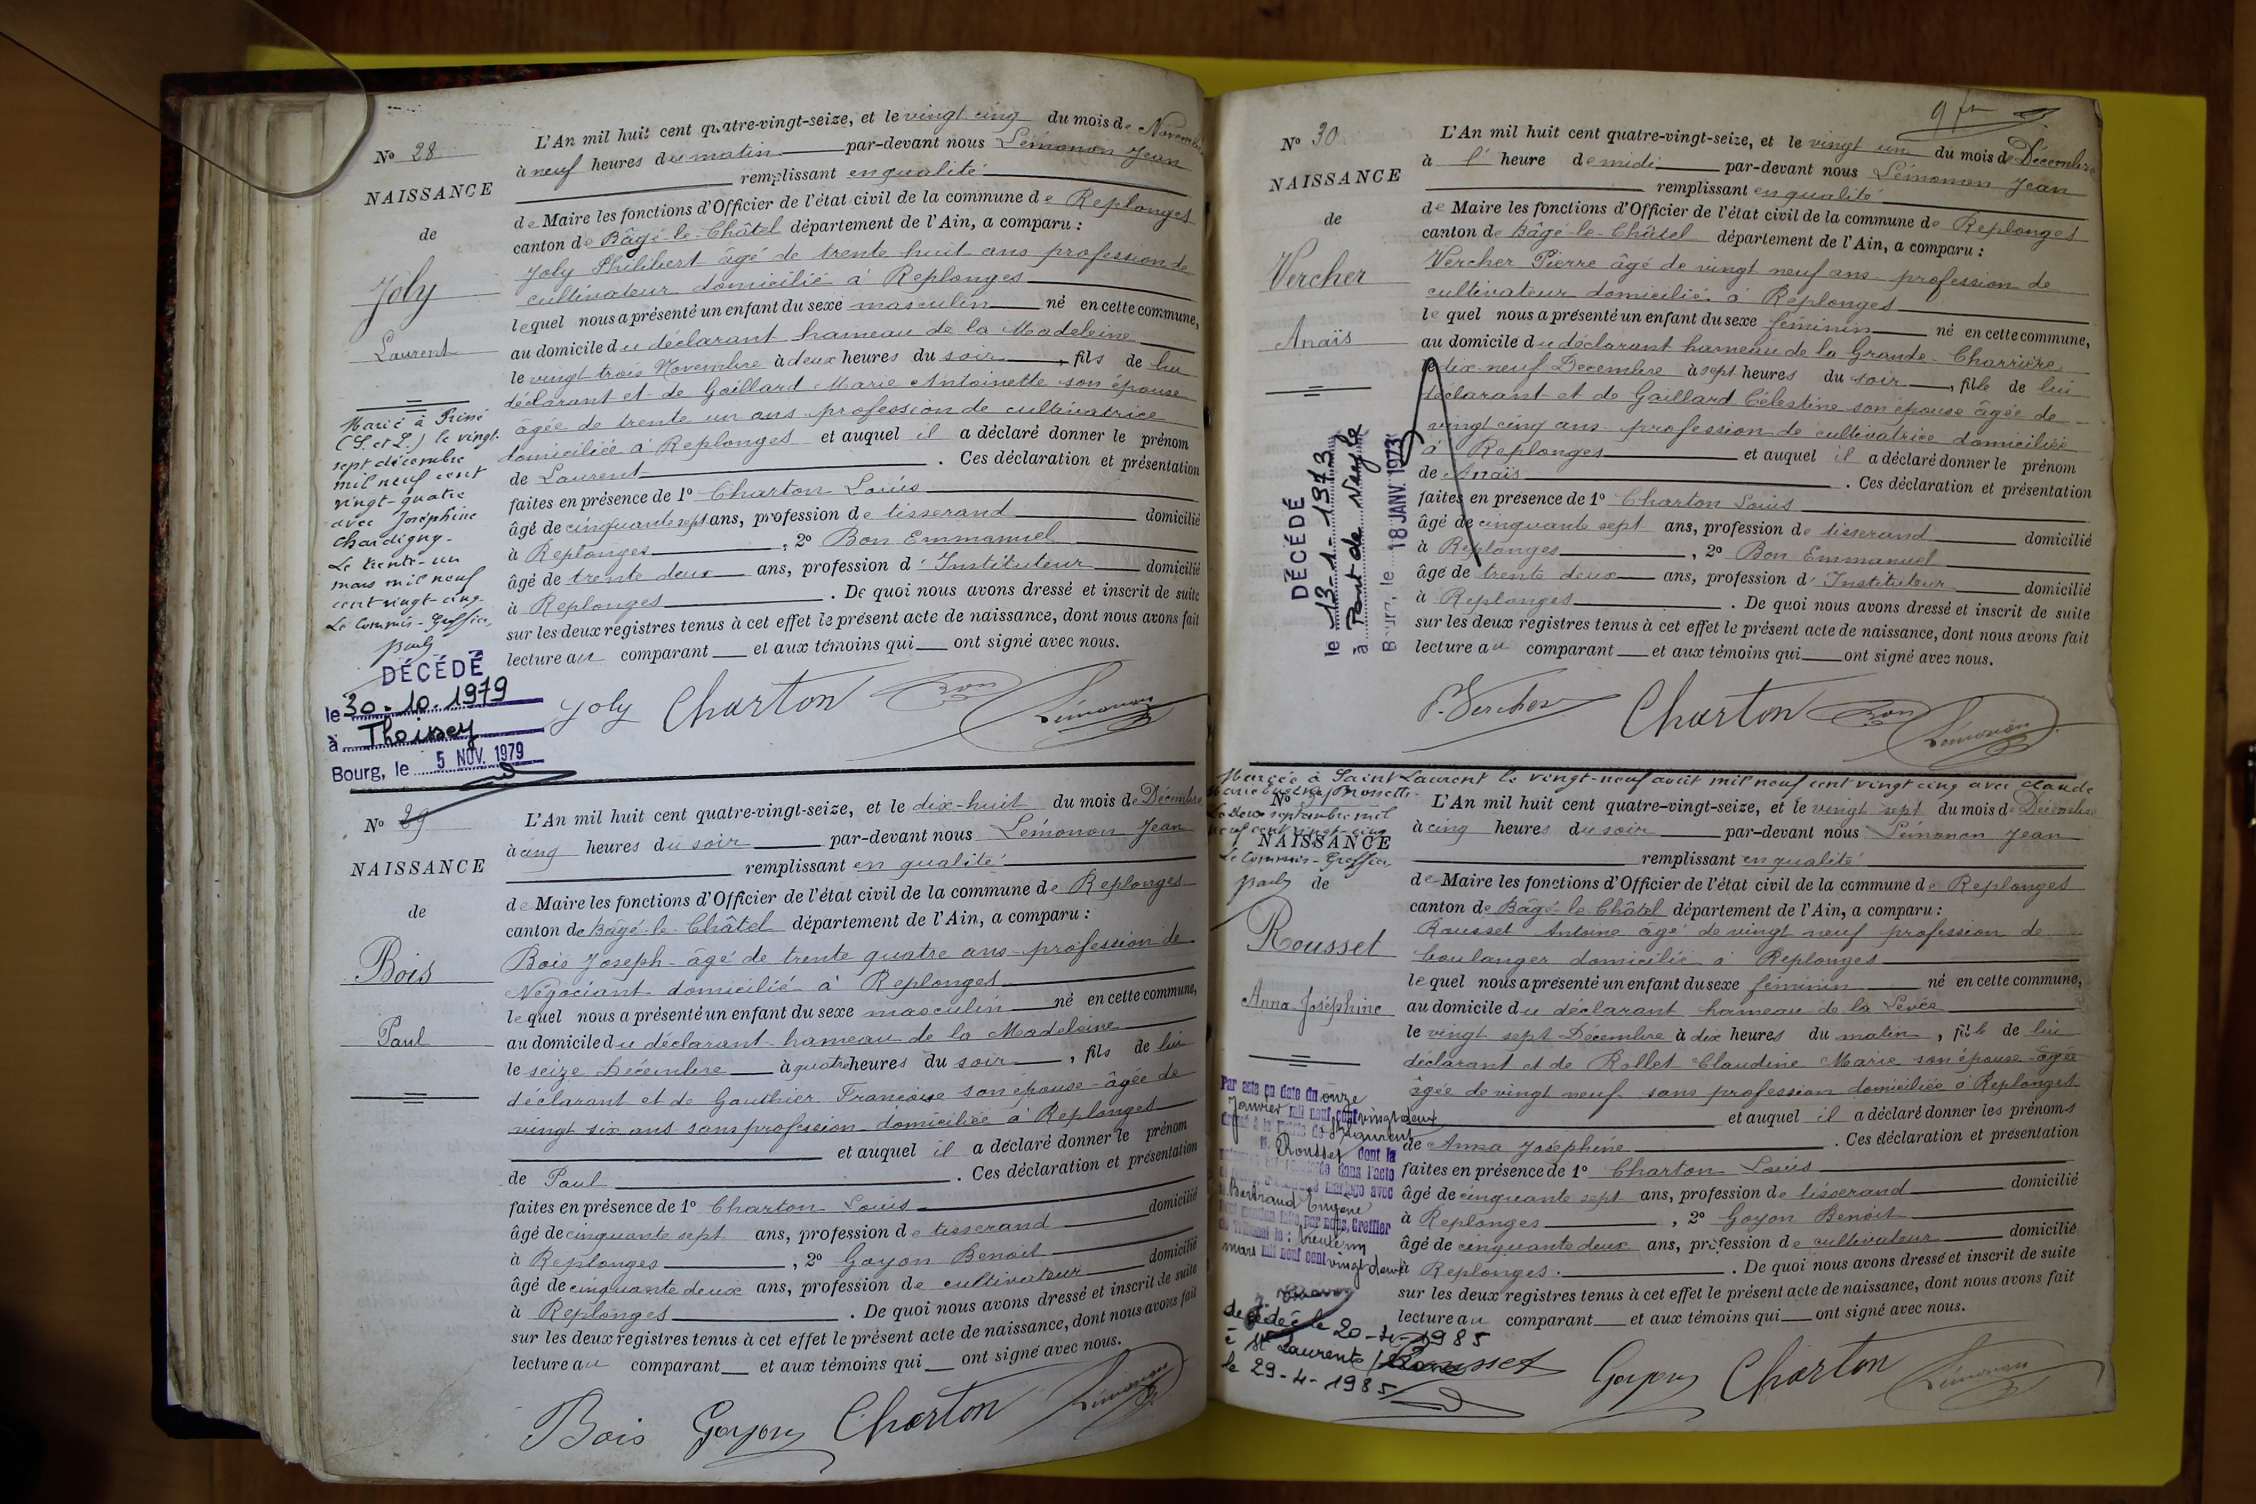 N° 28
NAISSANCE
de
Joly
Laurent
Marié à Prissé
(S. et L.) le vingt-
sept décembre
mil neuf cent
vingt-quatre
avec Joséphine
Chardigny.
Le trente-un
mars mil neuf
cent vingt-cinq
Le Commis-Greffier,
Pauly
DÉCÉDÉ
le 30.10.1979
à Thoissey
Bourg, le 5 NOV. 1979
L'An mil huit cent quatre-vingt-seize, et le vingt cinq du mois de Novembre
à neuf heures du matin par-devant nous Lémonon Jean
remplissant en qualité
de Maire les fonctions d'Officier de l'état civil de la commune de Replonges
canton de Bâgé-le-Châtel département de l'Ain, a comparu :
Joly Philibert âgé de trente huit ans profession de
cultivateur domicilié à Replonges
lequel nous a présenté un enfant du sexe masculin né en cette commune,
au domicile du déclarant hameau de la Madeleine
le vingt trois Novembre à deux heures du soir, fils de lui
déclarant et de Gaillard Marie Antoinette son épouse
âgée de trente un ans profession de cultivatrice
domiciliée à Replonges et auquel il a déclaré donner le prénom
de Laurent . Ces déclaration et présentation
faites en présence de 1° Charton Louis
âgé de cinquante sept ans, profession de tisserand domicilié
à Replonges , 2° Bon Emmanuel
âgé de trente deux ans, profession d'Instituteur domicilié
à Replonges . De quoi nous avons dressé et inscrit de suite
sur les deux registres tenus à cet effet le présent acte de naissance, dont nous avons fait
lecture au comparant et aux témoins qui ont signé avec nous.
Joly Charton Bon Lémonon
N° 29
NAISSANCE
de
Bois
Paul
L'An mil huit cent quatre-vingt-seize, et le dix-huit du mois de Décembre
à cinq heures du soir par-devant nous Lémonon Jean
remplissant en qualité
de Maire les fonctions d'Officier de l'état civil de la commune de Replonges
canton de Bâgé-le-Châtel département de l'Ain, a comparu :
Bois Joseph âgé de trente quatre ans profession de
Négociant domicilié à Replonges
lequel nous a présenté un enfant du sexe masculin né en cette commune,
au domicile du déclarant hameau de la Madeleine
le seize Décembre à quatre heures du soir , fils de lui
déclarant et de Gauthier Françoise son épouse âgée de
vingt six ans sans profession domiciliée à Replonges
et auquel il a déclaré donner le prénom
de Paul . Ces déclaration et présentation
faites en présence de 1° Charton Louis
âgé de cinquante sept ans, profession de tisserand domicilié
à Replonges , 2° Goyon Benoit
âgé de cinquante deux ans, profession de cultivateur domicilié
à Replonges . De quoi nous avons dressé et inscrit de suite
sur les deux registres tenus à cet effet le présent acte de naissance, dont nous avons fait
lecture au comparant et aux témoins qui ont signé avec nous.
Bois Goyon Charton Lémonon
N° 30
NAISSANCE
de
Vercher
Anaïs
DÉCÉDÉ
le 13-1-1973
à Pont de Veyle
Bourg, le 18 JANV. 1973
L'An mil huit cent quatre-vingt-seize, et le vingt un du mois de Décembre
à l' heure de midi par-devant nous Lémonon Jean
remplissant en qualité
de Maire les fonctions d'Officier de l'état civil de la commune de Replonges
canton de Bâgé-le-Châtel département de l'Ain, a comparu :
Vercher Pierre âgé de vingt neuf ans profession de
cultivateur domicilié à Replonges
lequel nous a présenté un enfant du sexe féminin né en cette commune,
au domicile du déclarant hameau de la Grande-Charrière
le dix-neuf Décembre à sept heures du soir, fille de lui
déclarant et de Gaillard Célestine son épouse âgée de
vingt cinq ans profession de cultivatrice domiciliée
à Replonges et auquel il a déclaré donner le prénom
de Anaïs . Ces déclaration et présentation
faites en présence de 1° Charton Louis
âgé de cinquante sept ans, profession de tisserand domicilié
à Replonges , 2° Bon Emmanuel
âgé de trente deux ans, profession d'Instituteur domicilié
à Replonges . De quoi nous avons dressé et inscrit de suite
sur les deux registres tenus à cet effet le présent acte de naissance, dont nous avons fait
lecture au comparant et aux témoins qui ont signé avec nous.
P. Vercher Charton Bon Lémonon
Mariée à Saint Laurent le vingt-neuf août mil neuf cent vingt cinq avec Claude
Le deux septembre mil
neuf cent vingt-cinq
Le Commis-Greffier
Pauly
N°
NAISSANCE
de
Rousset
Anna Joséphine
Par acte en date du onze
Janvier mil neuf cent vingt deux
St Laurent
Rousset dont la
dans l'acte
mariage avec
Bertrand Eugène
mention faite par nous, Greffier
du Tribunal le
mars mil neuf cent vingt deux
décédée le 20-4-1985
à St Laurent s/
le 29-4-1985
L'An mil huit cent quatre-vingt-seize, et le vingt sept du mois de Décembre
à cinq heures du soir par-devant nous Lémonon Jean
remplissant en qualité
de Maire les fonctions d'Officier de l'état civil de la commune de Replonges
canton de Bâgé-le-Châtel département de l'Ain, a comparu :
Rousset Antoine âgé de vingt neuf profession de
boulanger domicilié à Replonges
lequel nous a présenté un enfant du sexe féminin né en cette commune,
au domicile du déclarant hameau de la Levée
le vingt sept Décembre à dix heures du matin, fille de lui
déclarant et de Rollet Claudine Marie son épouse âgée
âgée de vingt neuf sans profession domiciliée à Replonges
et auquel il a déclaré donner les prénoms
de Anna Joséphine . Ces déclaration et présentation
faites en présence de 1° Charton Louis
âgé de cinquante sept ans, profession de tisserand domicilié
à Replonges , 2° Goyon Benoit
âgé de cinquante deux ans, profession de cultivateur domicilié
à Replonges . De quoi nous avons dressé et inscrit de suite
sur les deux registres tenus à cet effet le présent acte de naissance, dont nous avons fait
lecture au comparant et aux témoins qui ont signé avec nous.
Rousset Goyon Charton Lémonon